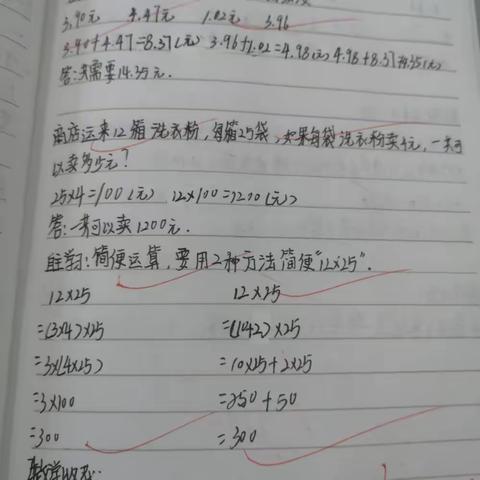 3.90元 4.47元 1.02元 3.96
3.90+4.47=8.37(元) 3.96+1.02=4.98(元) 4.98+8.37=13.35(元)
答:共需要14.35元.
商店运来12箱洗衣粉,每箱25袋,如果每袋洗衣粉卖4元,一共可
以卖多少元?
25×4=100(元) 12×100=1200(元)
答:一共可以卖1200元.
自主学习:简便运算,要用2种方法简便"12×25".
12×25 12×25
=(3×4)×25 =(10+2)×25
=3×(4×25) =10×25+2×25
=3×100 =250+50
=300 =300